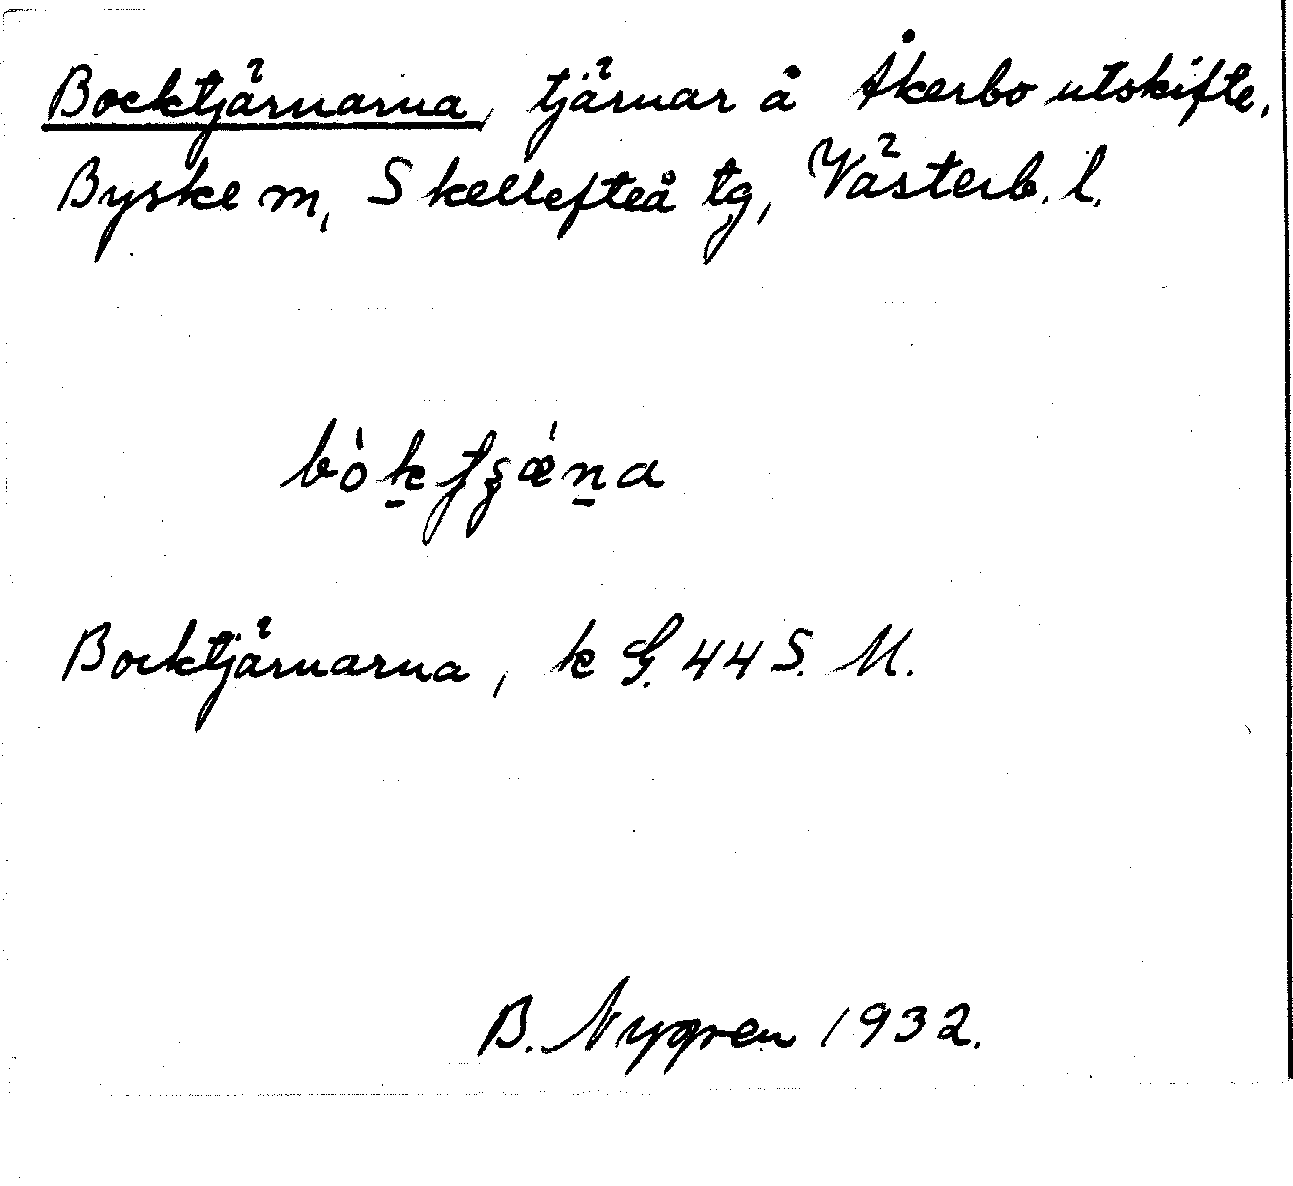 Bocktjärnarna, tjärnar å Åkerbo utskifte,
Byske m, Skellefteå tg, Västerb. l.
Bocktjärnarna, k G. 44 S. M.
B. Nygren 1932.